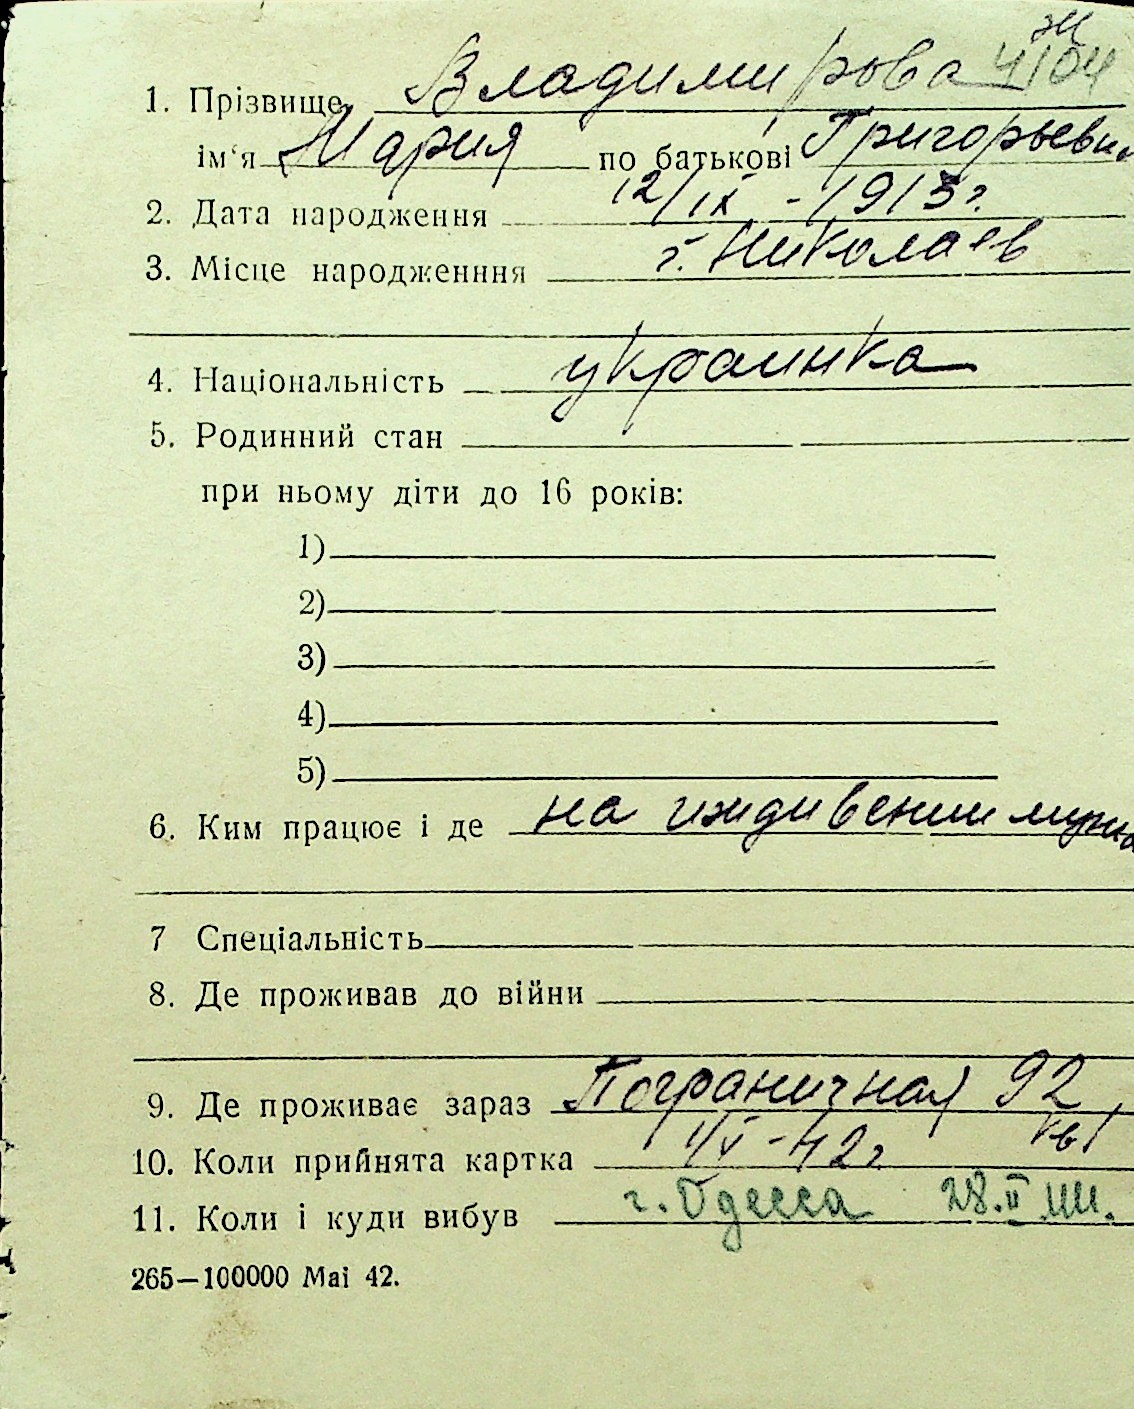 1. Прізвище Владимирова 4104
ім‘я Мария по батькові Григорьевн
2. Дата народження 12/IX - 1913 г.
3. Місце народженння г. Николаев
4. Національність украинка
5. Родинний стан
при ньому діти до 16 років:
1)
2)
3)
4)
5)
6. Ким працює і де на иждивении мужа
7 Спеціальність
8. Де проживав до війни
9. Де проживає зараз Пограничная 92
кв 1
10. Коли прийнята картка 1/V - 42 г.
11. Коли і куди вибув г. Одесса 28.II 44.
265—100000 Mai 42.